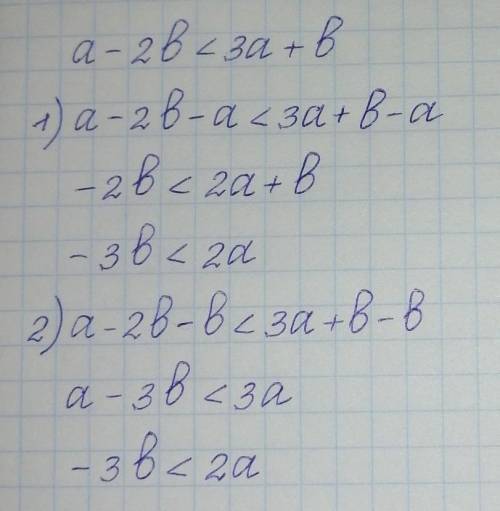 a - 2b < 3a + b
1) a - 2b - a < 3a + b - a
- 2b < 2a + b
- 3b < 2a
2) a - 2b - b < 3a + b - b
a - 3b < 3a
- 3b < 2a